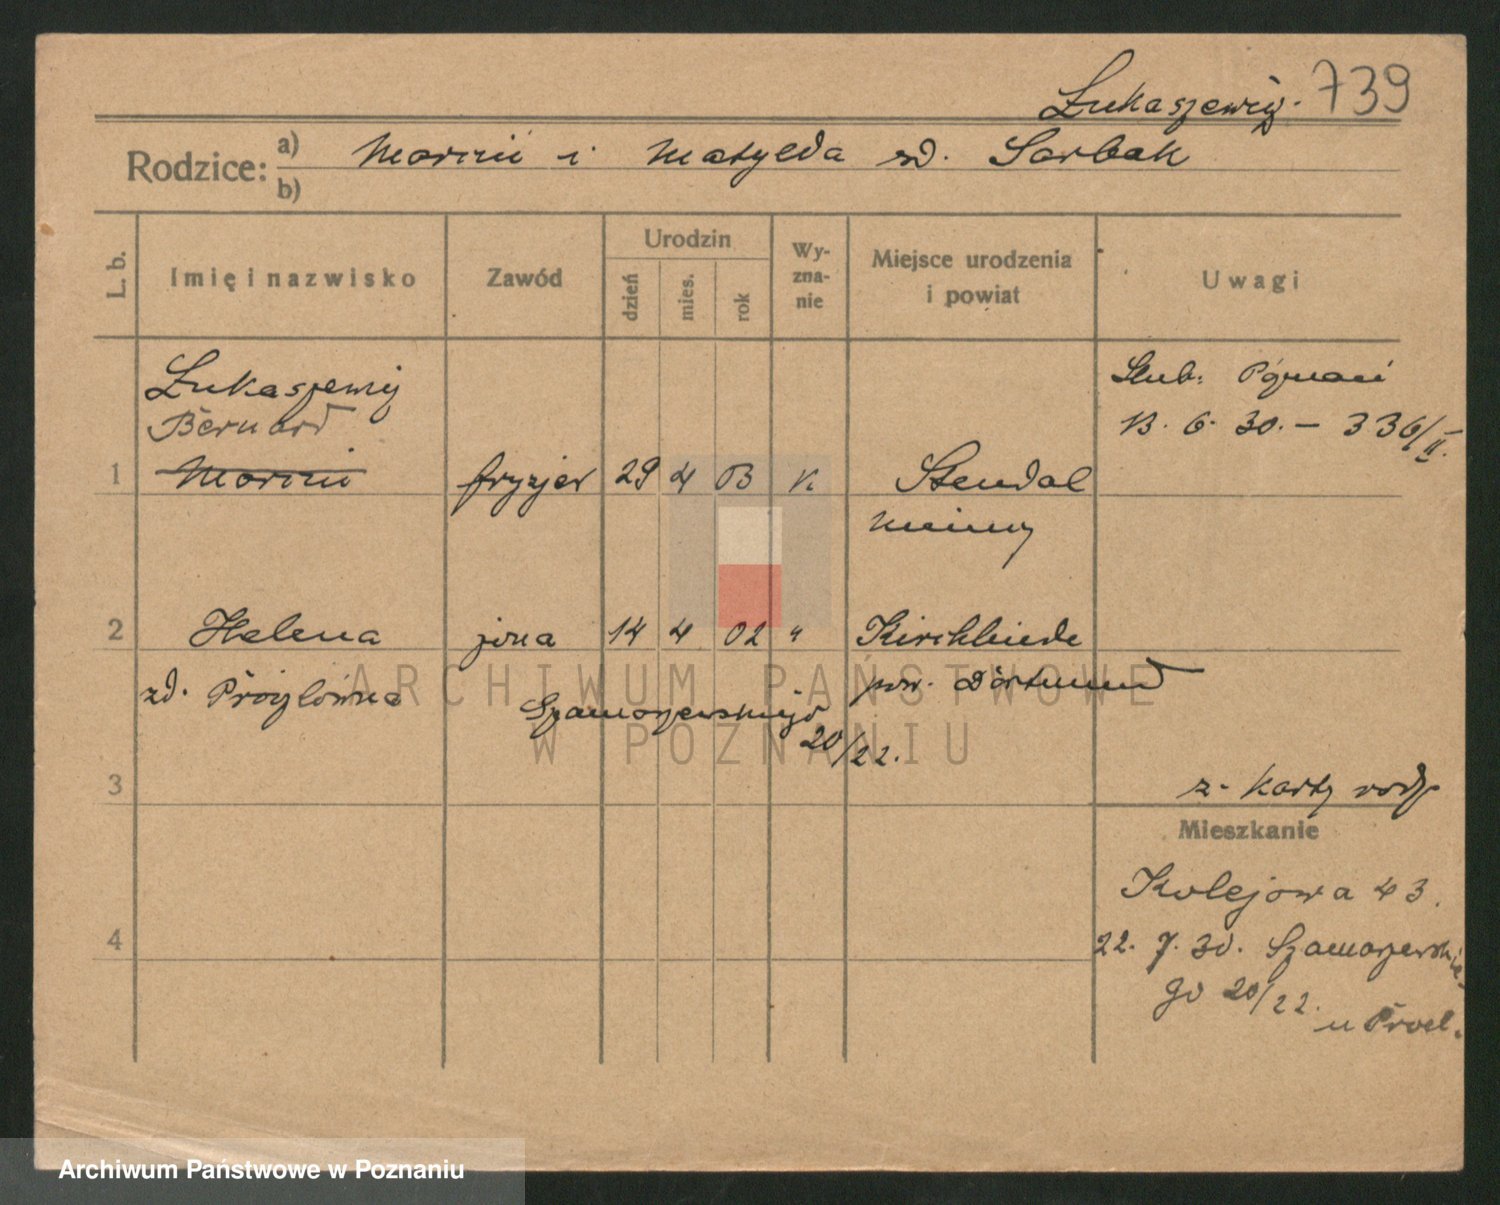 Łukaszewicz. 739
Rodzice:
a) Marcin i Matylda zd. Sarbak
b)
L. b.
Imię i nazwisko
Zawód
Urodzin
dzień
mies.
rok
Wy-
zna-
nie
Miejsce urodzenia
i powiat
Uwagi
Łukaszewicz
Bernard
1 Marcin fryzjer 29 4 13 K Stendal
Niemcy
Ślub: Poznań
13. 6. 30. – 336/II.
2 Helena żona 14 4 02 " Kirchlinde
zd. pow. Dortmund
Szamarzewskiego
20/22.
3
z karty rodz
Mieszkanie
Kolejowa 43.
4
22. 7. 30. Szamarzewskie-
go 20/22.
u
ARCHIWUM PAŃSTWOWE
W POZNANIU
Archiwum Państwowe w Poznaniu